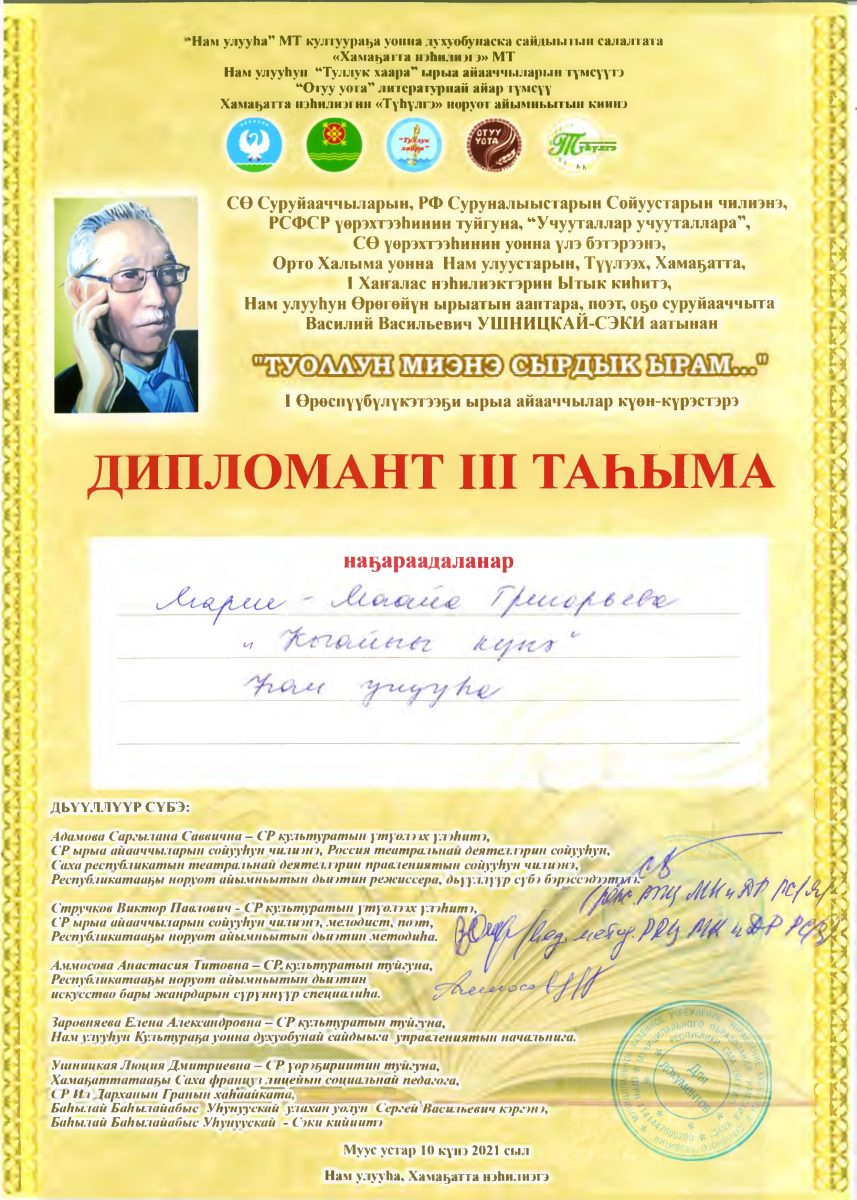 “Нам улууһа” МТ култуураҕа уонна духуобунаска сайдыытын салалтата
«Хамаҕатта нэһилиэгэ» МТ
Нам улууһун “Туллук хаара” ырыа айааччыларын түмсүүтэ
“Отуу уота” литературнай айар түмсүү
Хамаҕатта нэһилиэгин «Түһүлгэ» норуот айымньытын киинэ
“Туллук хаара”
ОТУУ УОТА
Түһүлгэ
СӨ Суруйааччыларын, РФ Суруналыыстарын Сойуустарын чилиэнэ,
РСФСР үөрэхтээһинин туйгуна, “Учууталлар учууталлара”,
СӨ үөрэхтээһинин уонна үлэ бэтэрээнэ,
Орто Халыма уонна Нам улуустарын, Түүлээх, Хамаҕатта,
I Хаҥалас нэһилиэктэрин Ытык киһитэ,
Нам улууһун Өрөгөйүн ырыатын ааптара, поэт, оҕо суруйааччыта
Василий Васильевич УШНИЦКАЙ-СЭКИ аатынан
"ТУОЛЛУН МИЭНЭ СЫРДЫК ЫРАМ..."
I Өрөспүүбүлүкэтээҕи ырыа айааччылар күөн-күрэстэрэ
ДИПЛОМАНТ III ТАҺЫМА
наҕараадаланар
Мария - Маайа Григорьева
күнэ"
Нам улууһа
ДЬҮҮЛЛҮҮР СҮБЭ:
Адамова Саргылана Саввична – СР культуратын үтүөлээх үлэһитэ,
СР ырыа айааччыларын сойууһун чилиэнэ, Россия театральнай деятеллэрин сойууһун,
Саха республикатын театральнай деятеллэрин правлениятын сойууһун чилиэнэ,
Республикатааҕы норуот айымньытын дьиэтин режиссера, дьүүллүүр сүбэ бэрэссэдээтэлэ.
Стручков Виктор Павлович - СР культуратын үтүөлээх үлэһитэ,
СР ырыа айааччыларын сойууһун чилиэнэ, мелодист, поэт,
Республикатааҕы норуот айымньытын дьиэтин методиһа.
Аммосова Анастасия Титовна – СР культуратын туйгуна,
Республикатааҕы норуот айымньытын дьиэтин
искусство бары жанрдарын сүрүннүүр специалиһа.
Заровняева Елена Александровна – СР культуратын туйгуна,
Нам улууһун Културaҕа уонна духуобунай сайдыыга управлениятын начальнига.
Ушницкая Люция Дмитриевна – СР үөрэҕириитин туйгуна,
Хамаҕаттатааҕы Саха француз лицейин социальнай педагога,
СР Ил Дарханын Гранын хаһаайката,
Баһылай Баһылайабыс Уһунуускай улахан уолун Сергей Васильевич кэргэнэ,
Баһылай Баһылайабыс Уһунуускай - Сэки кийиитэ
Для документов
Муус устар 10 күнэ 2021 сыл
Нам улууһа, Хамаҕатта нэһилиэгэ